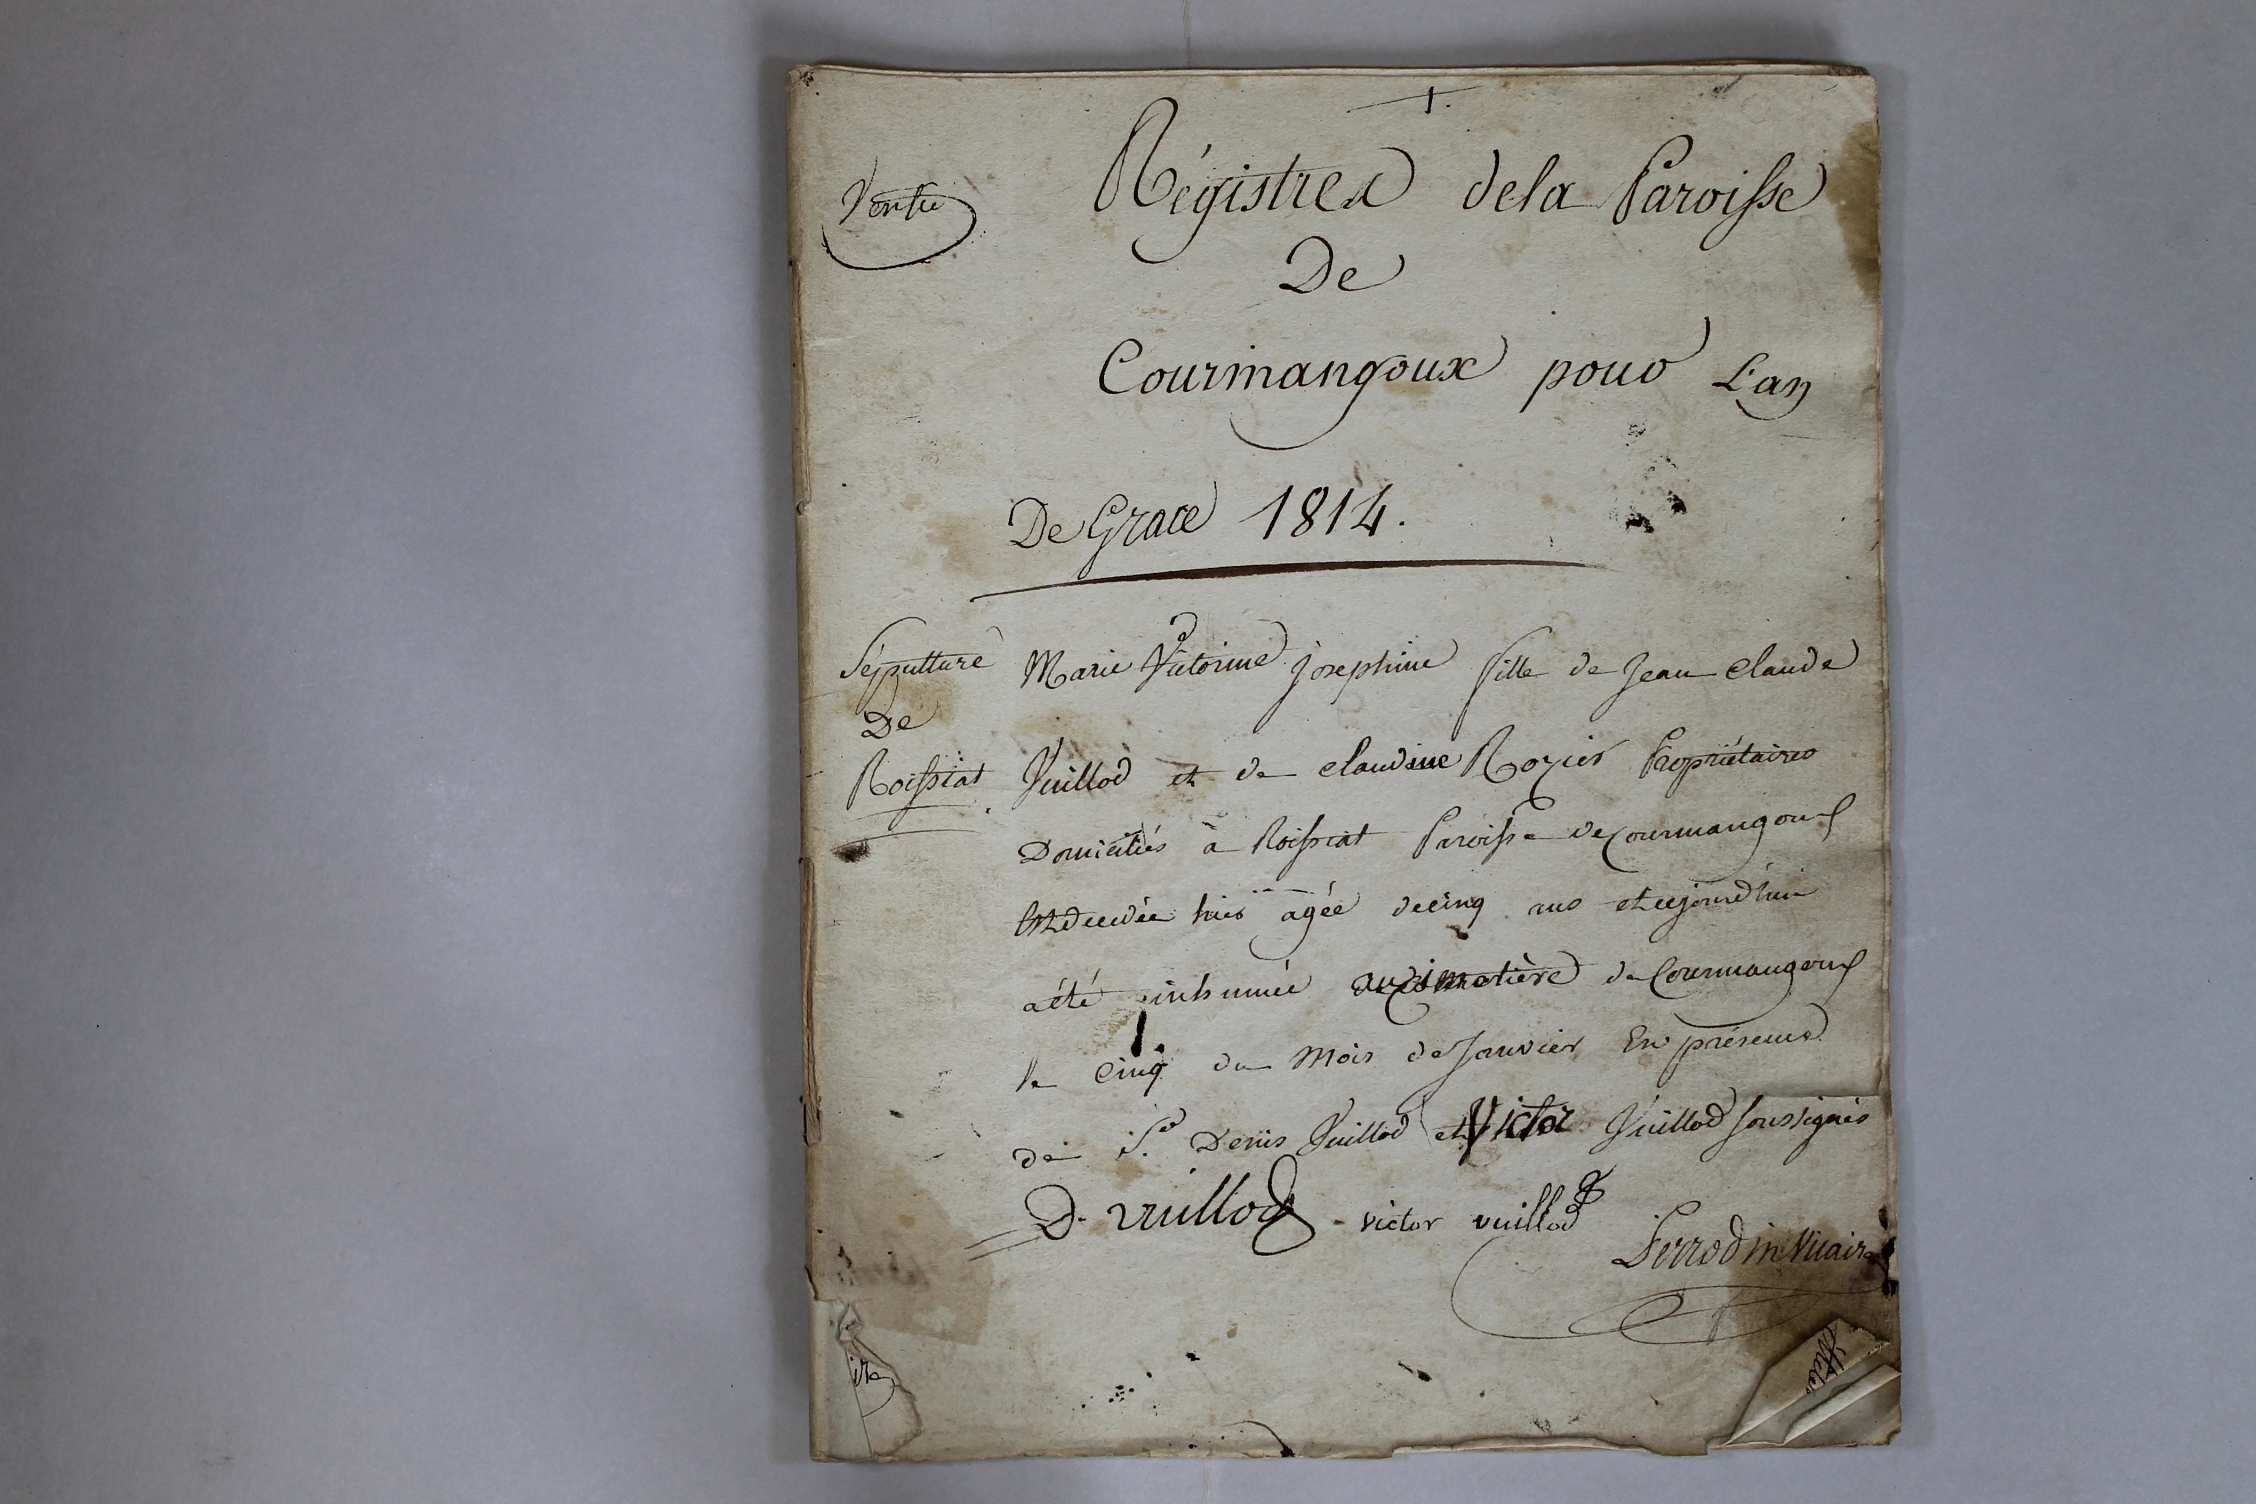 1.
Régistres dela Paroisse
De
Courmangoux pour L'an
De Grace 1814.
Sépulture
De
Roissiat
Marie Victoirine Josephine fille de Jean Claude
Vuillod et de Claudine Rozier Propriétaires
Domiciliés à Roissiat Paroisse de Courmangoux
Est decedée hier agée decinq ans et cejourd'hui
a été inhumée au cimetière de Courmangoux
le cinq du mois de Janvier En présence
de Sr. Denis Vuillod et Victor Vuillod soussignés
D. vuillod victor vuillod
Perrodin Vicaire